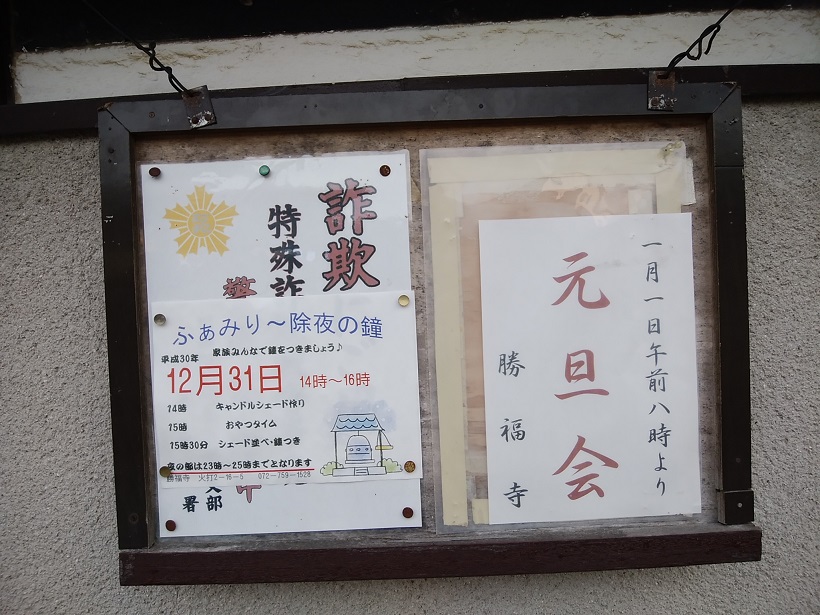 詐欺
特殊詐
ふぁみり〜除夜の鐘
平成30年 家族みんなで鐘をつきましょう♪
12月31日 14時〜16時
14時 キャンドルシェード作り
15時 おやつタイム
15時30分 シェード並べ・鐘つき
夜の鐘は23時〜25時までとなります
勝福寺 火打2-16-5 072-759-1528
部
署
一月一日午前八時より
元旦会
勝福寺